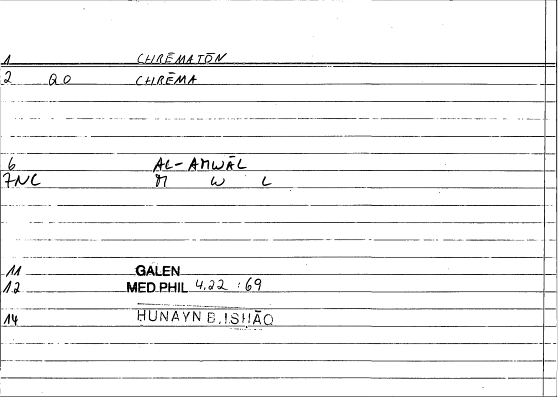 1 CHRĒMATŌN
2 QO CHRĒMA
6 AL-AMWĀL
7NC M W L
11 GALEN
12 MED.PHIL 4.22 :69
14 HUNAYN B.ISHĀQ